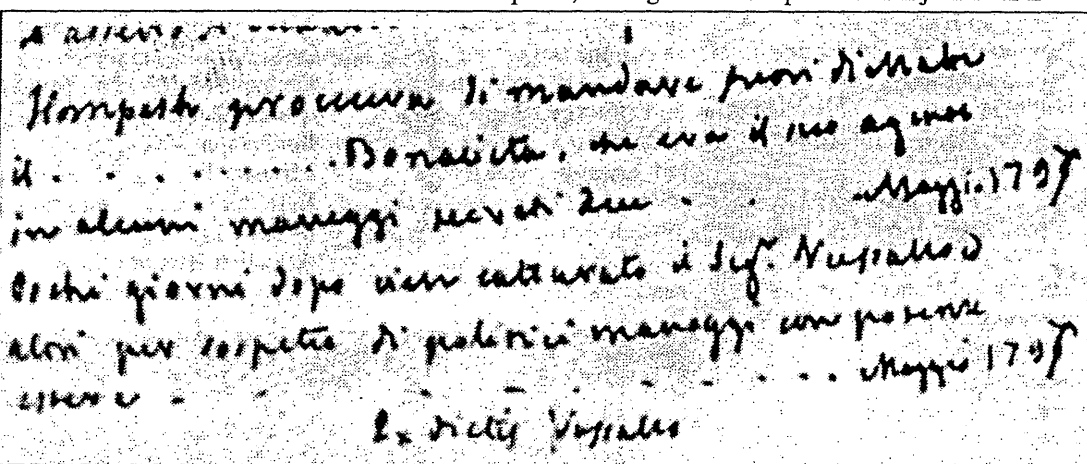 Hompesch procurava di mandare fuori di Malta
il . . . . . . . . . Bonavita, che era il suo agente
in alcuni maneggi secreti . . Maggio. 1797
Pochi giorni dopo vien catturato il Sigr. Vassallo
altri per sospetto di politici maneggi con potenze
estere - - - - - - - . . . Maggio 1797
Ex dictis Vassallo